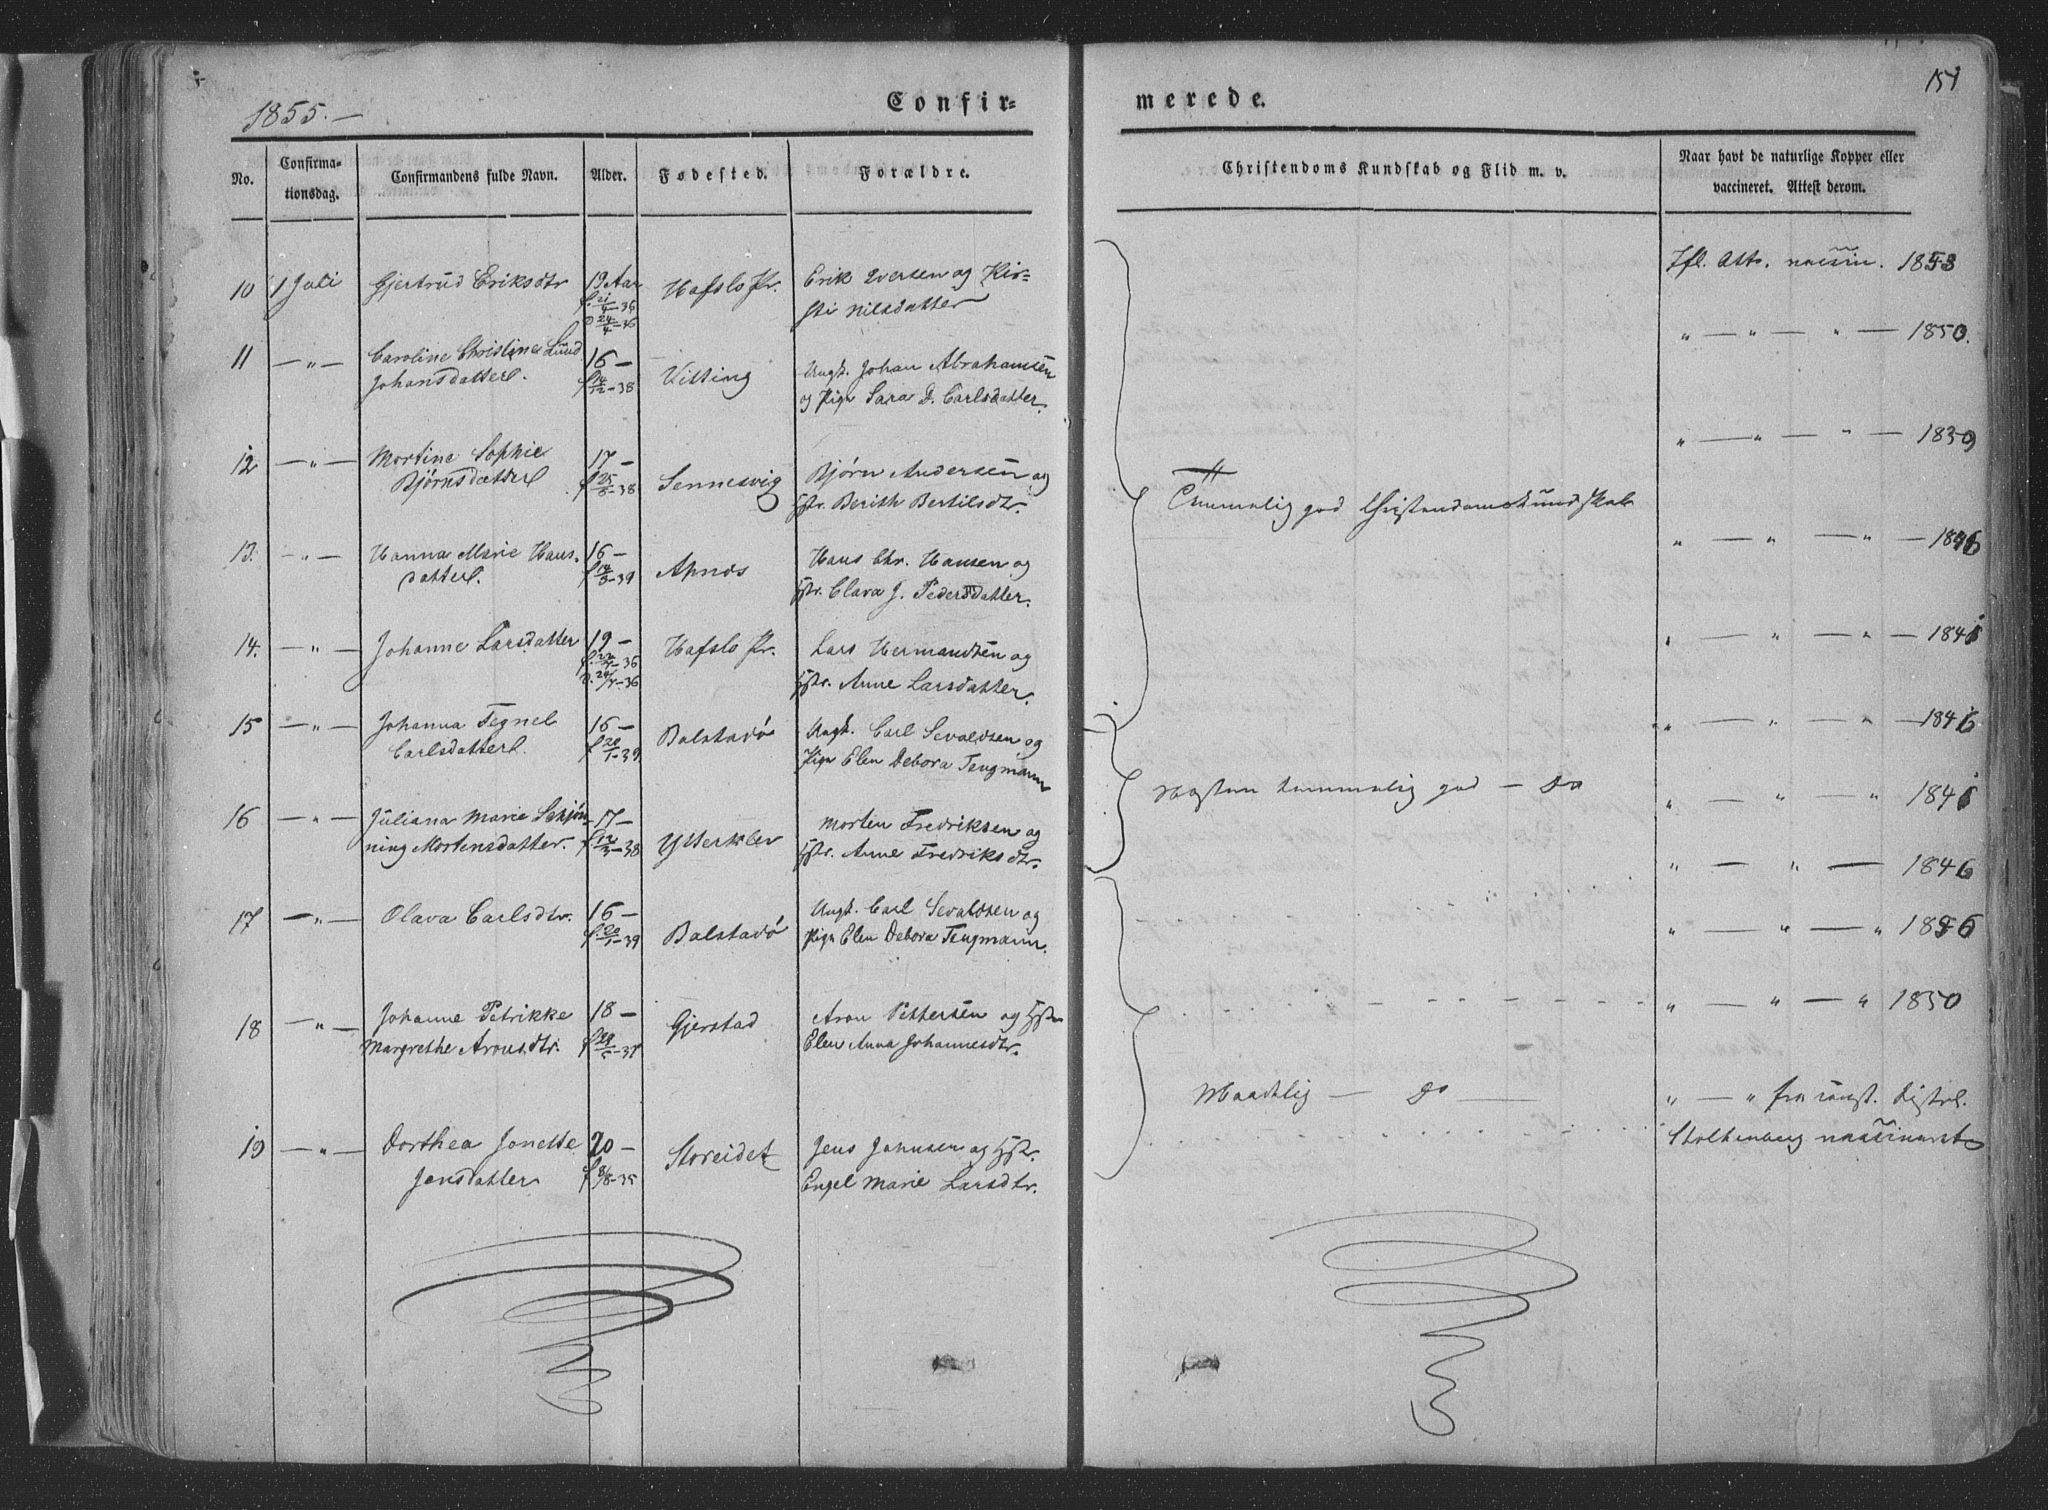 1855.—
Confir=
merede.
151
No.
Confirma-
tionsdag.
Confirmandens fulde Navn.
Alder.
Fødested.
Forældre.
Christendoms Kundskab og Flid m. v.
Naar havt de naturlige Kopper eller
vaccineret. Attest derom.
10 1 Juli Gjertrud Eriksdtr 19 Aar Hafslo Pr. Erik Iversen og Kir-
f. 21/4-36 sti Nilsdatter
d 24/4-36
Ifl. Att. 1853
11 —"— Caroline Christine Lund 16— Utting Ungk. Johan Abrahamsen
Johansdatter. f. 14/12-38 og Pige Sara D. Carlsdatter.
" — " — " — 1850.
12 —"— Mortine Sophie 17— Sennesvig Bjørn Andersen og
Bjørnsdatter f. 25/8-38 Hstr. Berith Bertilsdtr.
" — " — " — 1850
god Christendomskundskab
13. —"— Hanna Marie Hans- 16— Apnes Hans Chr. Hansen og
datter. Hstr. Clara J. Pedersdatter.
" — " — " — 1846
14. —"— Johanne Larsdatter 19— Hafslo Pr. Lars Hermandsen og
f. 22/4-36 Hstr. Anne Larsdatter.
d. 24/4-36
" — " — " —
15 —"— Johanna Tegnel 16— Balstadø Ungk. Carl Sevaldsen og
Carlsdatter f. 20/1-39 Pige Elen Debora Tengmann
" — " — " — 1846
Næsten temmelig god — Do
16 —"— Juliana Marie Schjøn- 17— Ytterklev Morten Fredriksen og
ning Mortensdatter. f. 12/3-38 Hstr. Anne Fredriksdtr.
" — " — " — 1846
17 —"— Olava Carlsdtr. 16— Balstadø Ungk. Carl Sevaldsen og
f. 20/1-39 Pige Elen Debora Tengmann.
" — " — "
18 —"— Johanne Petrikke 18— Gjerstad Aron Pettersen og Hstr
Margrethe Aronsdtr. Elen Anna Johannesdtr.
" — " — " 1850
Maadelig — Do —
19 —"— Dorthea Jonette 20— Storeidet Jens Johnsen og Hstr.
Jensdatter f. 8/8-35 Engel Marie Larsdtr.
" — " fra const. Distrl.
Stoltenberg vaccineret